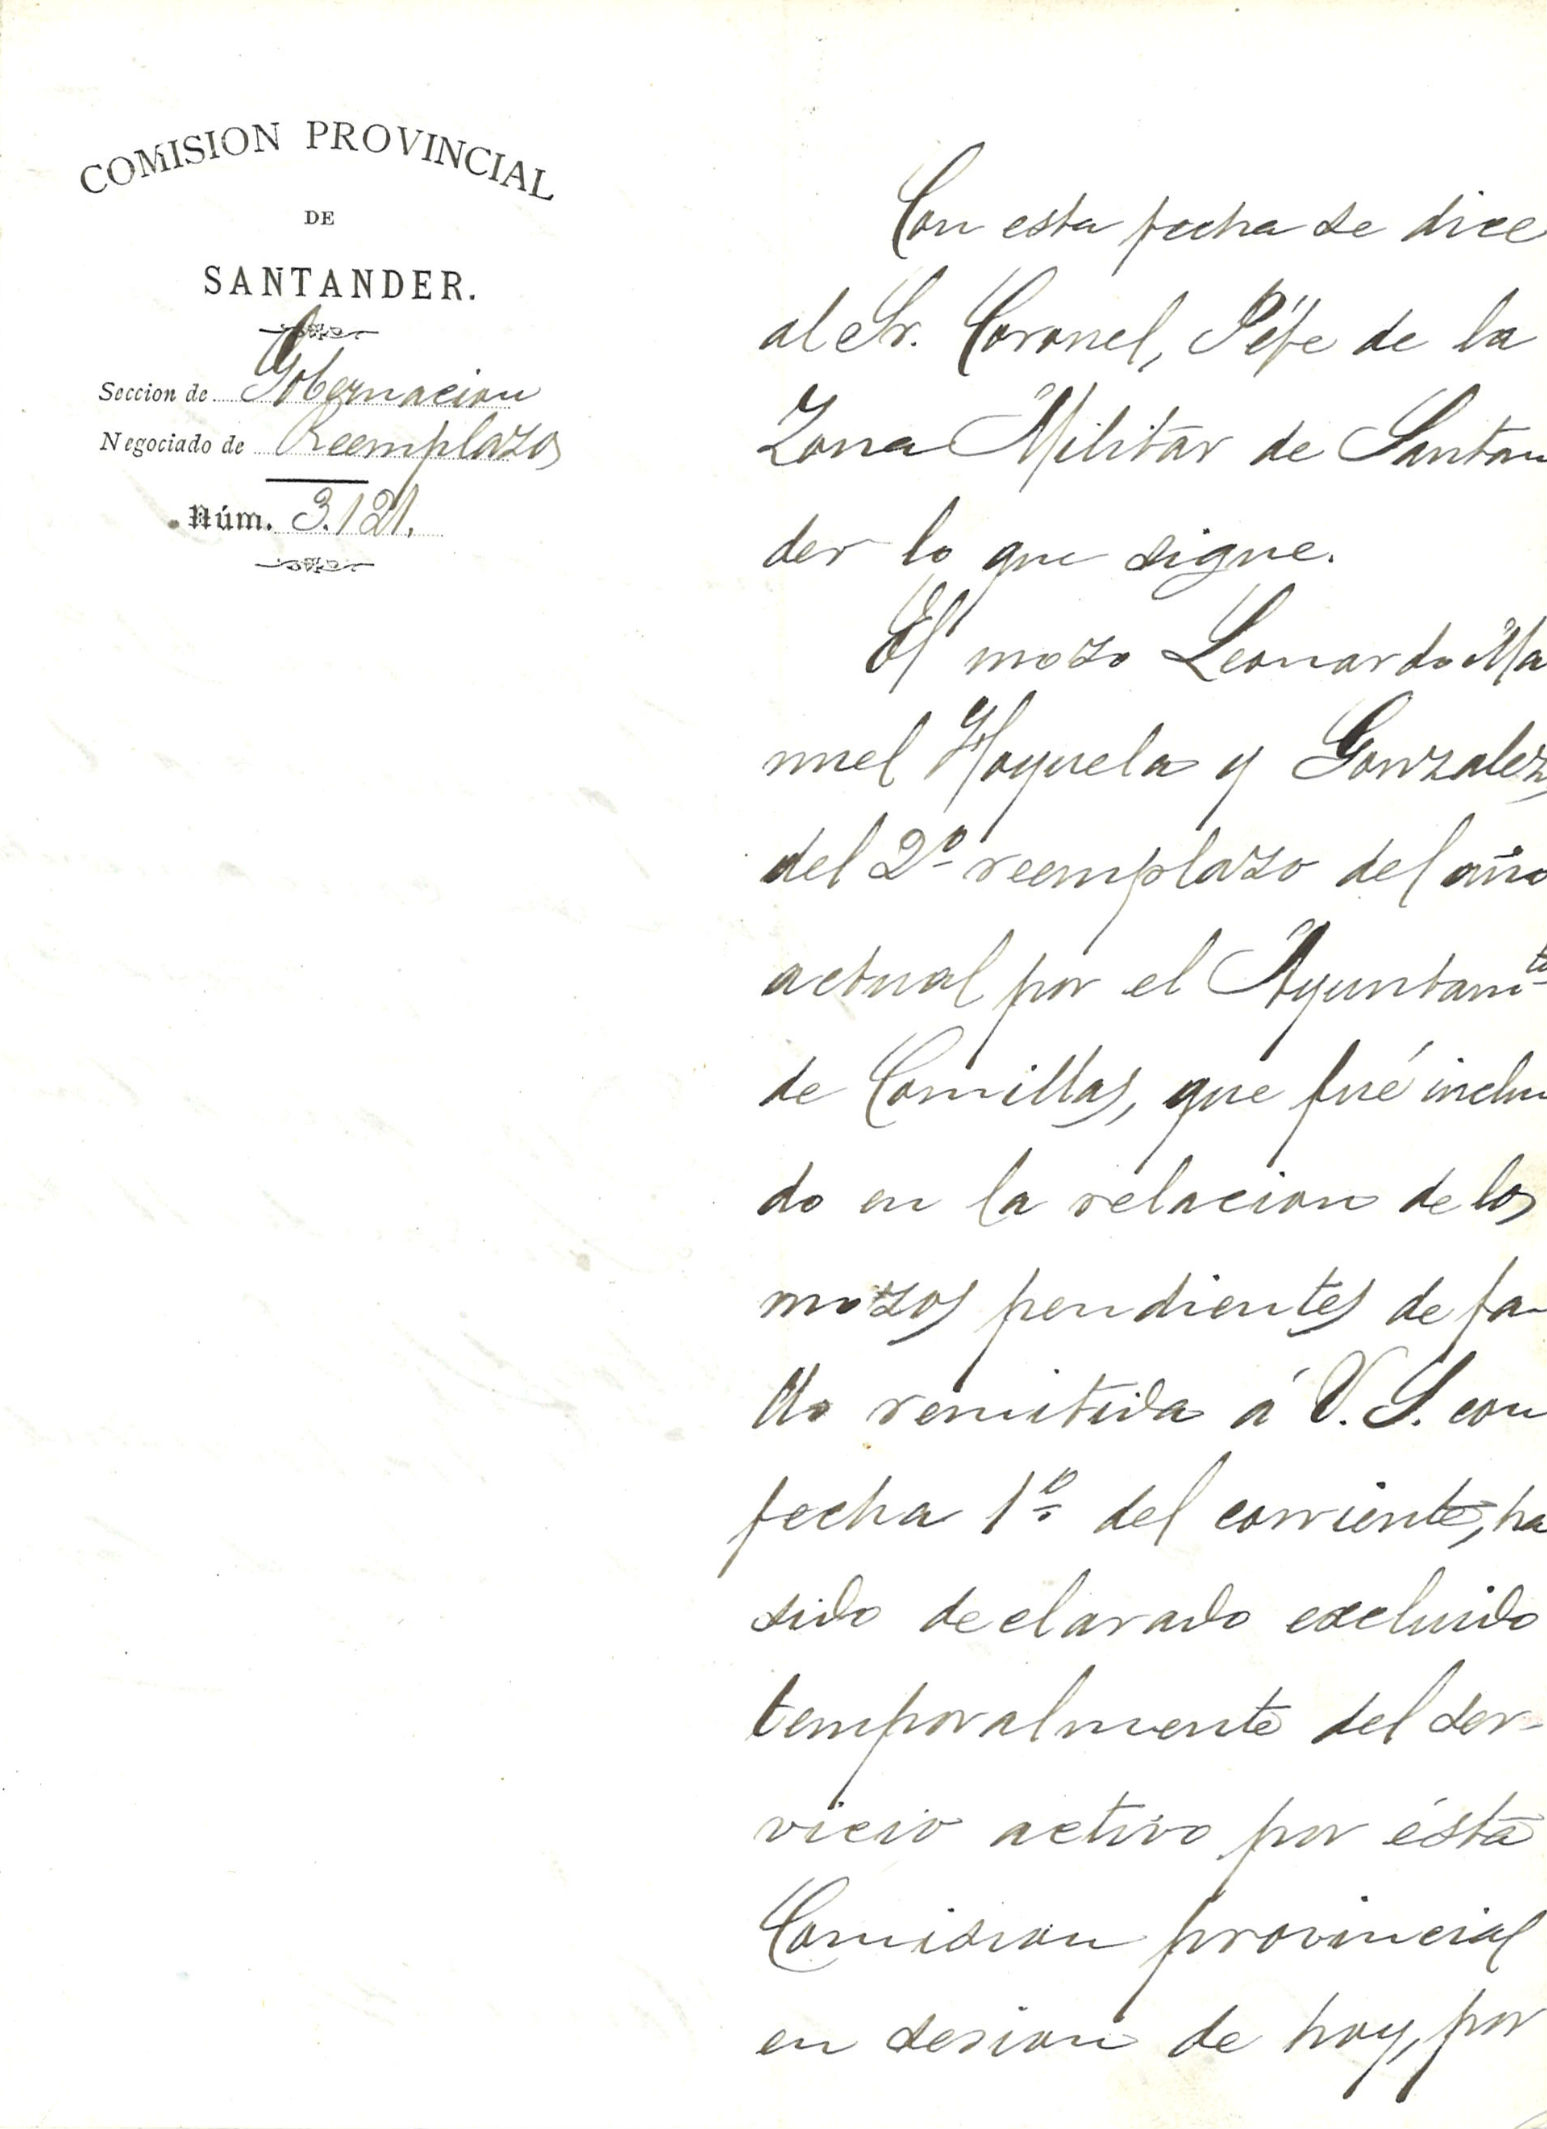 COMISION PROVINCIAL
DE
SANTANDER.
Seccion de Gobernacion
Negociado de Reemplazos
Núm. 3.121.
Con esta fecha se dice
al Sr. Coronel, Géfe de la
Zona Militar de Santan
der lo que sigue.
El mozo Leonardo Ma
nuel Hoyuela y Gonzalez,
del 2º reemplazo del año
actual por el Ayuntamto
de Comillas, que fué inclui
do en la relacion de los
mozos pendientes de fa-
llo remitida á V. S. con
fecha 1º del corriente, ha
sido declarado excluido
temporalmente del ser-
vicio activo por ésta
Comision provincial
en sesion de hoy, por